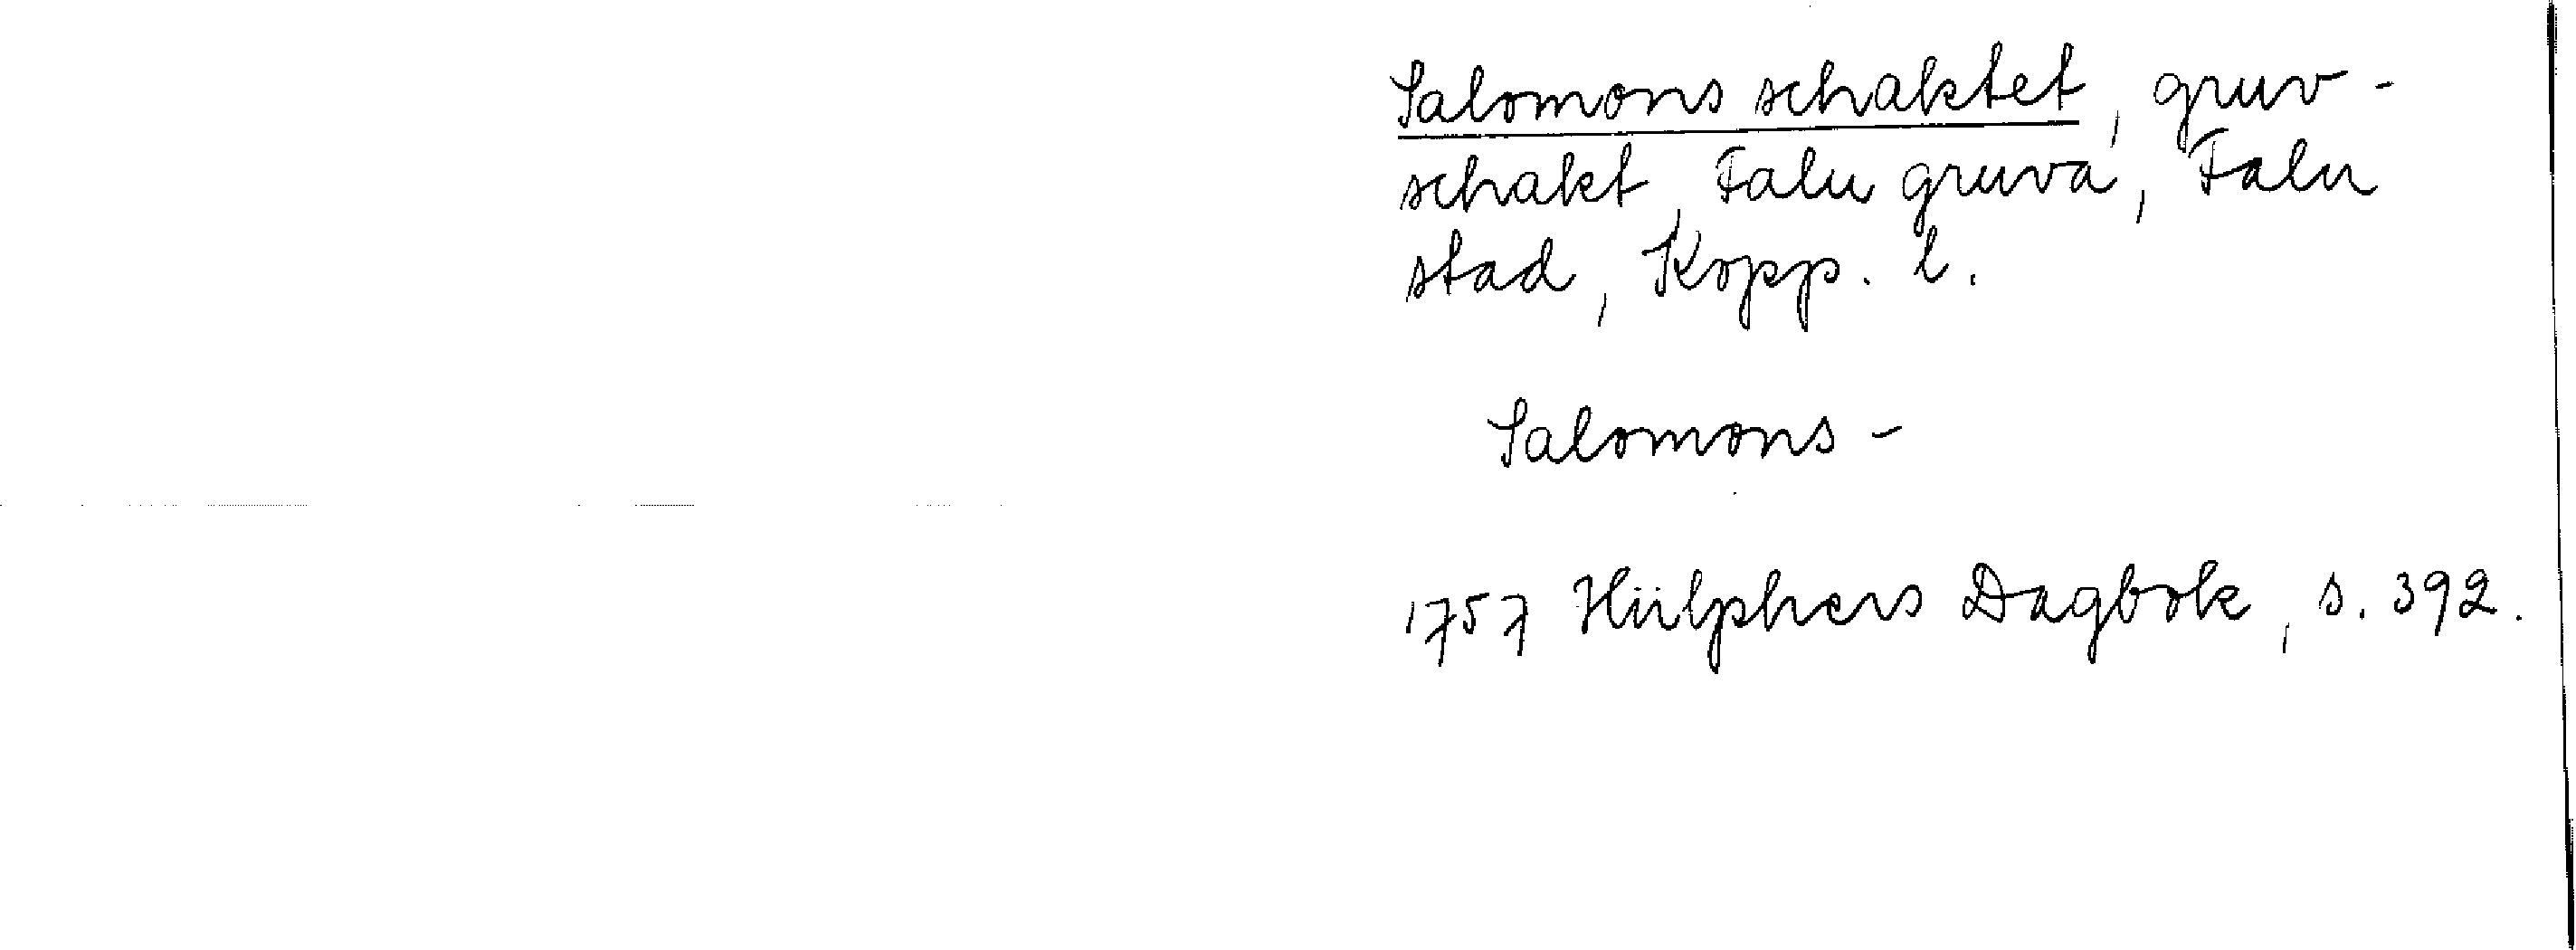 Salomons schaktet, gruv-
schakt, Falu gruva, Falu
stad, Kopp. l.
Salomons-
1757 Hülphers Dagbok, s. 392.